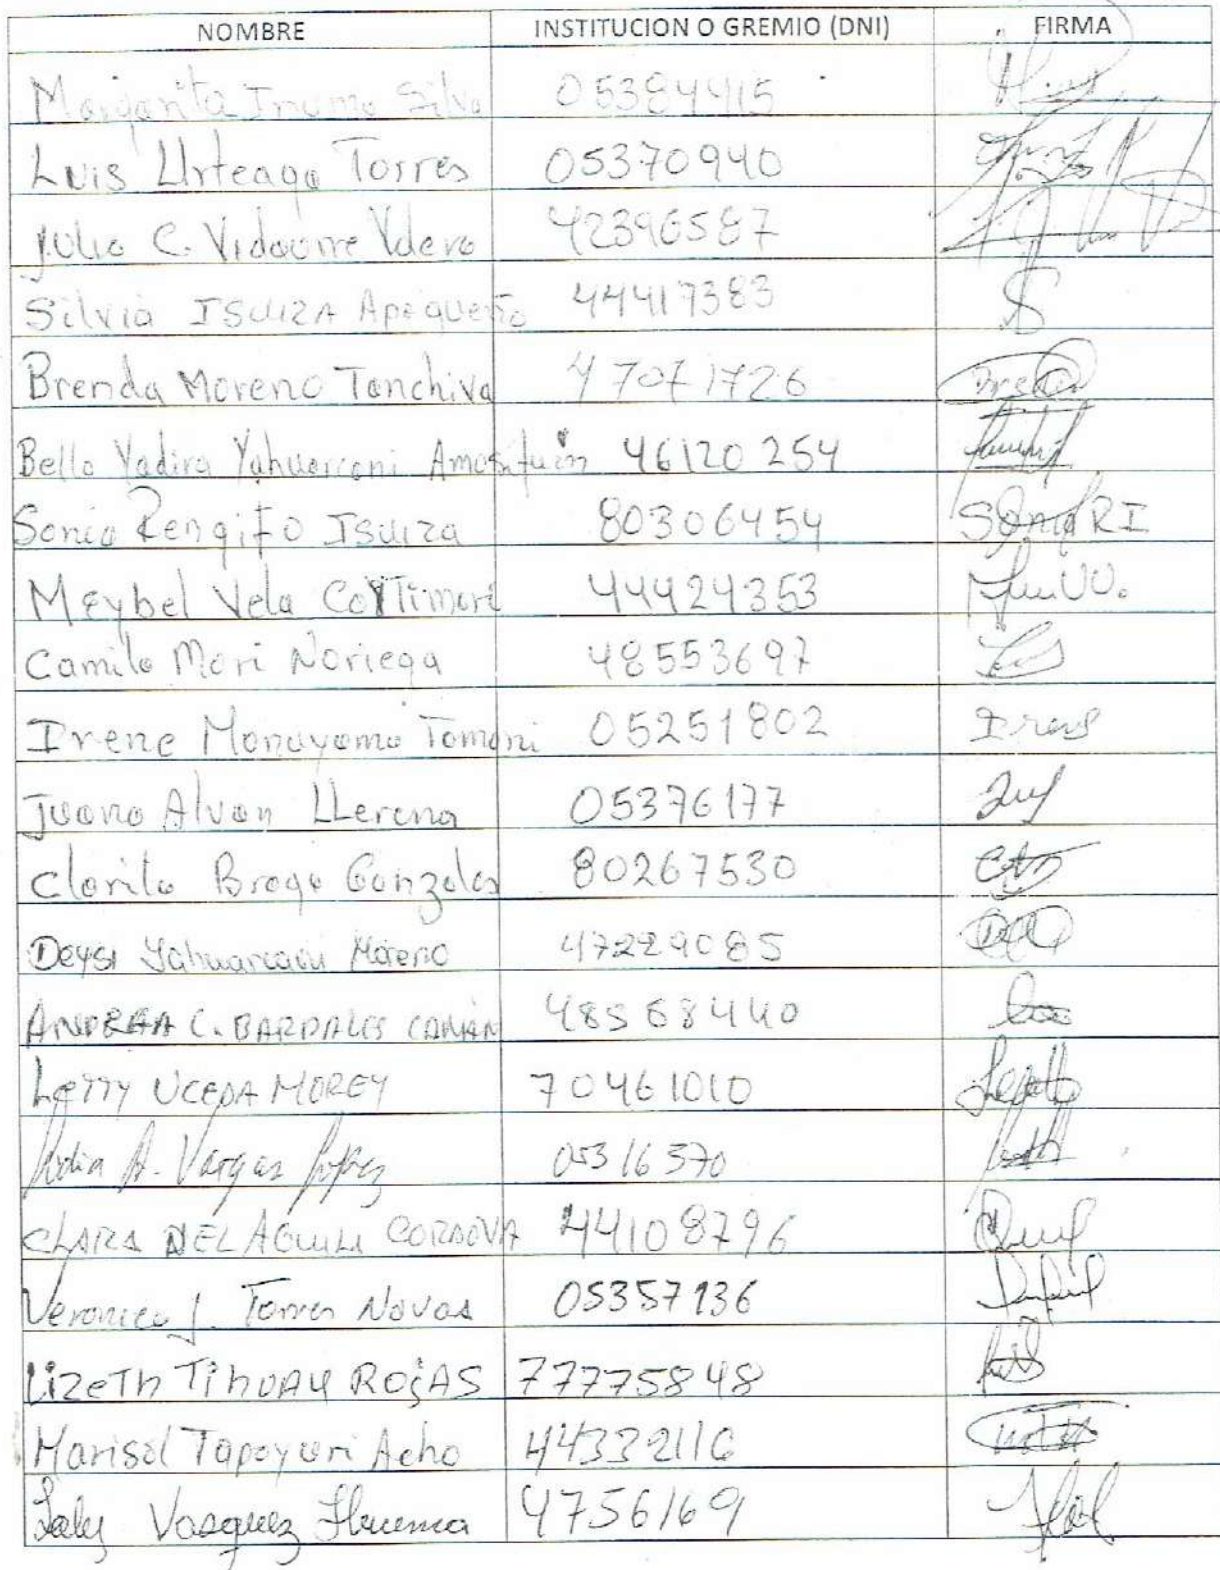 NOMBRE INSTITUCION O GREMIO (DNI) FIRMA
Margarita Inuma Silva 05384415
Luis Urteaga Torres 05370940
Julio C. Vidaurre Valera 42396587
Silvia ISUIZA Apagueño 44417383
Brenda Moreno Tanchiva 47071726 Brenda
Bella Yadira Yahuarcani Amasifuen 46120254
Sonia Rengifo Isuiza 80306454 Sonia RI
Meybel Vela Curitimari 44424353
Camila Mori Noriega 48553697
Irene Manuyama Tamani 05251802 Irene
Juana Alvan LLerena 05376177
Clarita Braga Gonzales 80267530
Deysi Yahuarcani Moreno 47229085
ANDREA C. BARDALES CAHUAN 48568440
LETTY UCEDA MOREY 70461010
A. Vargas López 05316370
CLARA DEL AGUILA CORDOVA 44108796
Veronica J. Torres Navas 05357136
LizeTh TihuAY RojAS 77775848
Marisol Tapayuri Acho 44332116
Laly Vasquez Ihuema 4756169